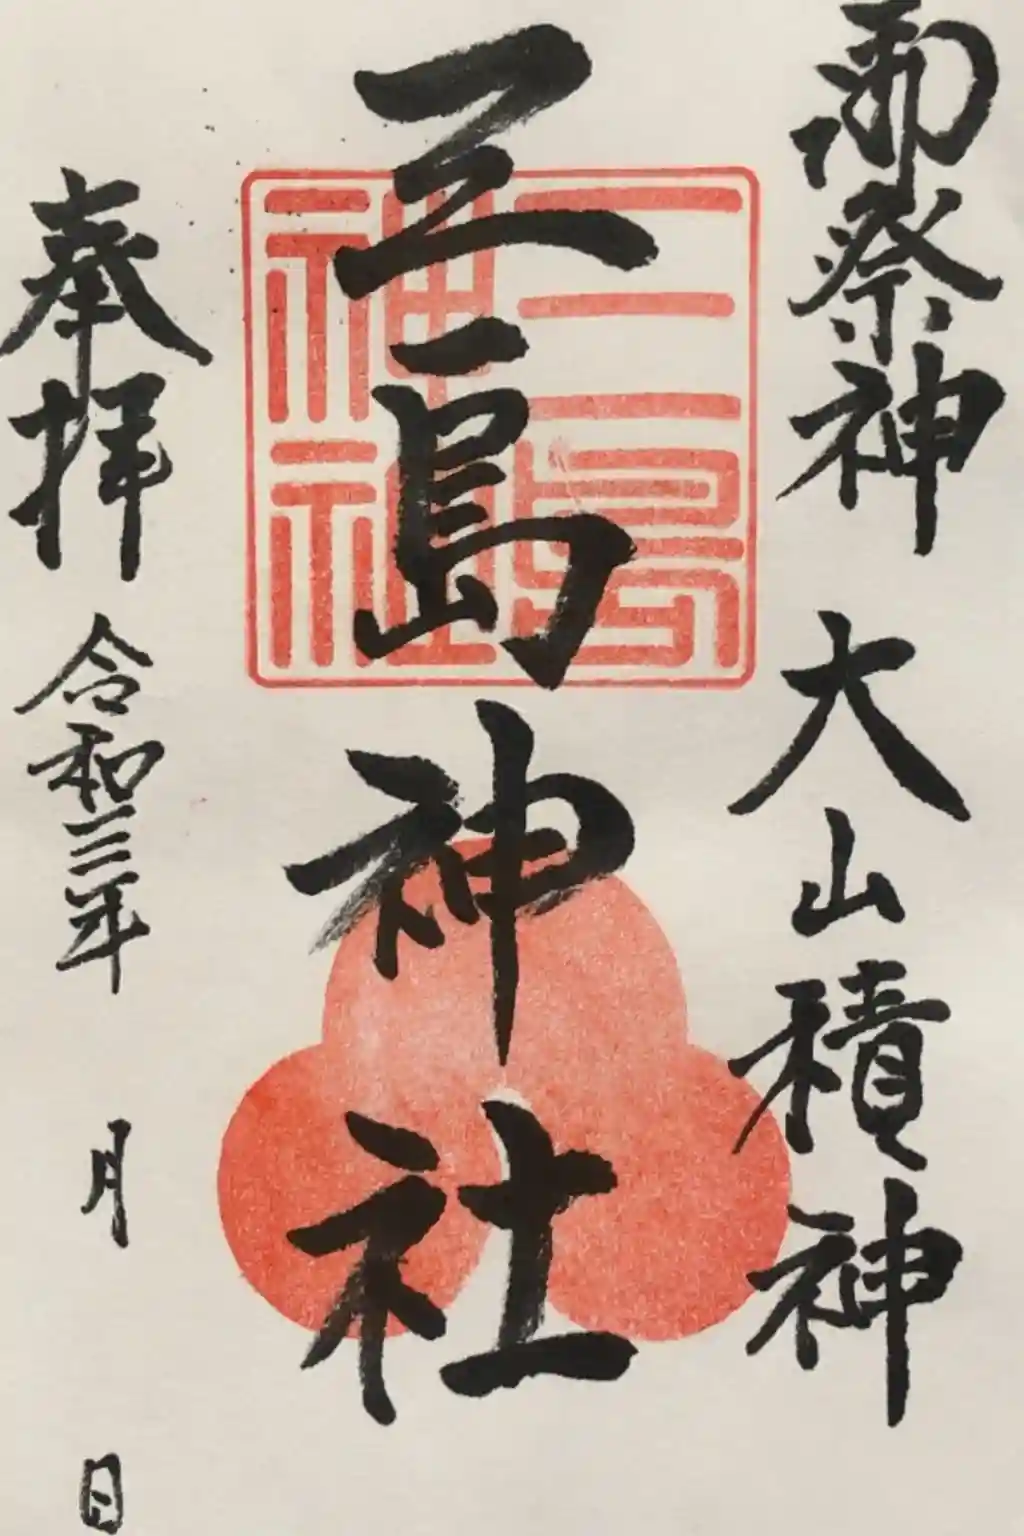 御祭神 大山積神
三島神社
三島
神社
奉拝 令和三年 月 日